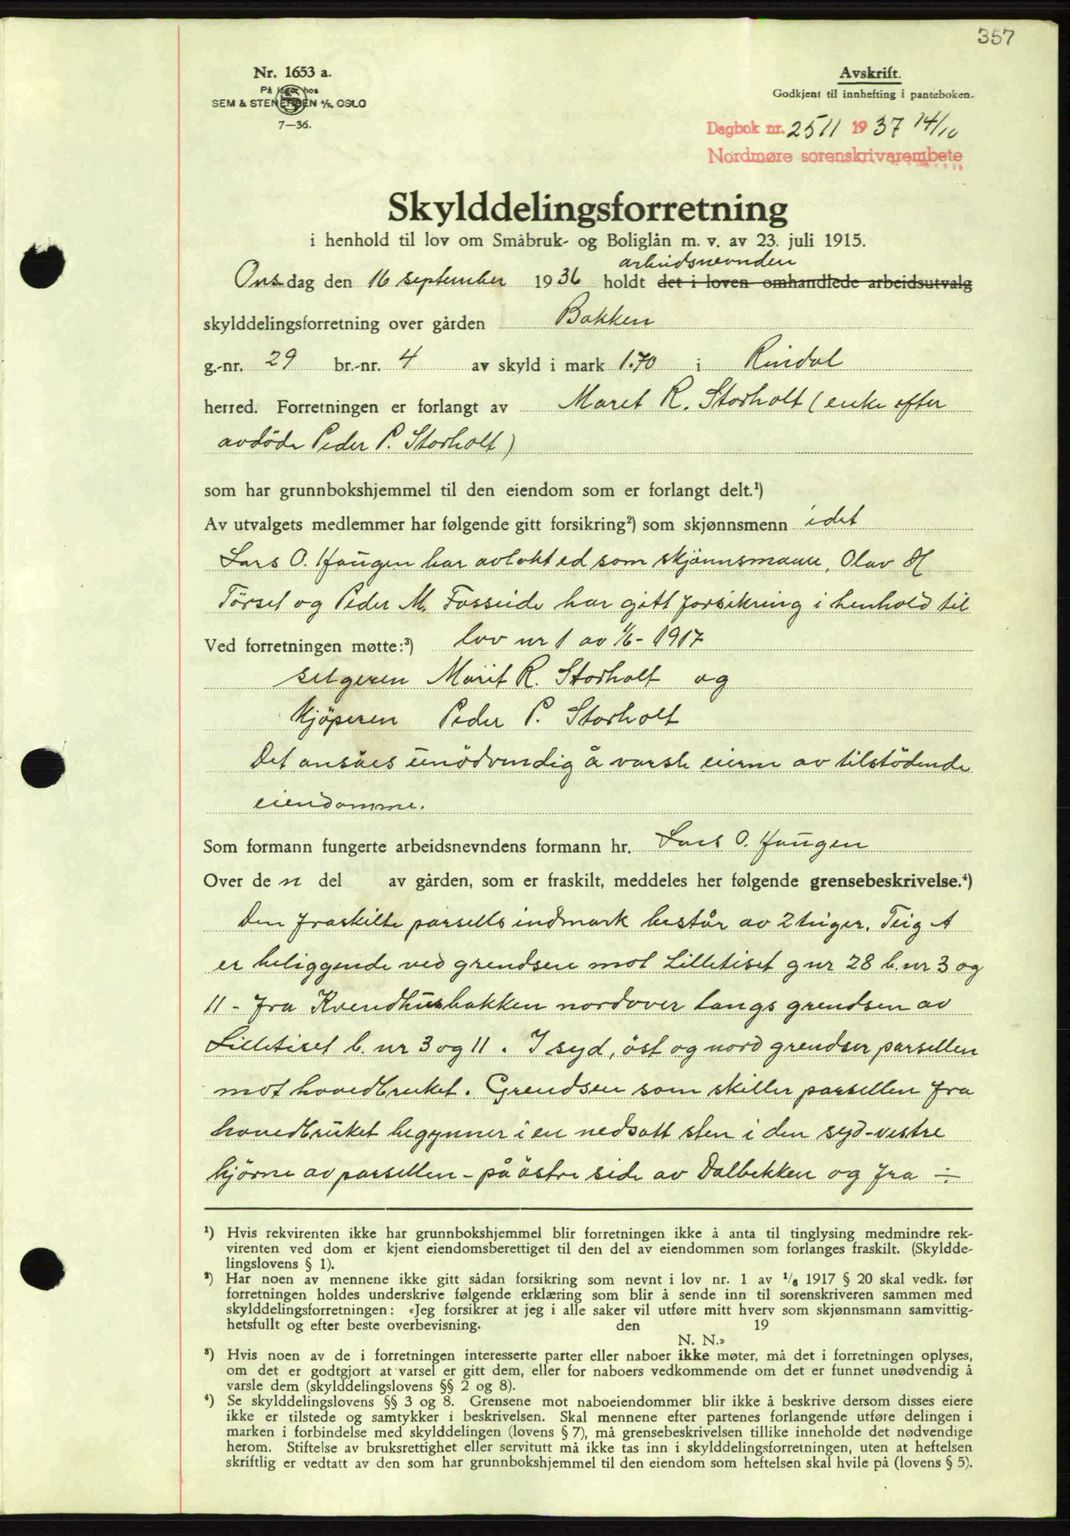 357
Nr. 1653 a.
På lager hos
SEM & STENERSEN A/S, OSLO
7—36.
Avskrift.
Godkjent til innhefting i panteboken.
Dagbok nr. 2511 1937 14/10
Nordmøre sorenskrivarembete
Skylddelingsforretning
i henhold til lov om Småbruk- og Boliglån m. v. av 23. juli 1915.
arbeidsnevnden
Onsdag den 16 september 1936 holdt det i loven omhandlede arbeidsutvalg
skylddelingsforretning over gården Bakken
g.-nr. 29 br.-nr. 4 av skyld i mark 1.70 i Rindal
herred. Forretningen er forlangt av Maret R. Storholt (enke efter
avdöde Peder P. Storholt)
som har grunnbokshjemmel til den eiendom som er forlangt delt.¹)
Av utvalgets medlemmer har følgende gitt forsikring²) som skjønnsmenn idet
Lars O. Haugen har avlakt ed som skjönnsmann, Olav H
Törset og Peder M. Fosseide har gitt forsikring i henhold til
Ved forretningen møtte:³) lov nr 1 av 1/6-1917
selgeren Marit R. Storholt og
kjöperen Peder P. Storholt
Det ansåes unödvendig å varsle eierne av tilstödende
eiendomme.
Som formann fungerte arbeidsnevndens formann hr. Lars O. Haugen
Over den del av gården, som er fraskilt, meddeles her følgende grensebeskrivelse.⁴)
Den fraskilte parsells indmark består av 2 teiger. Teig A
er beliggende ved grendsen mot Lilletiset gnr 28 b.nr 3 og
11 - fra Kvendhusbakken nordover langs grendsen av
Lilletiset b. nr 3 og 11. I syd, öst og nord grendser parsellen
mot hovedbruket. Grendsen som skiller parsellen fra
hovedbruket begynner i en nedsatt sten i den syd-vestre
hjörne av parsellen - på östre side av Dalbekken og fra ÷
¹) Hvis rekvirenten ikke har grunnbokshjemmel blir forretningen ikke å anta til tinglysing medmindre rek-
virenten ved dom er kjent eiendomsberettiget til den del av eiendommen som forlanges fraskilt. (Skyldde-
lingslovens § 1).
²) Har noen av mennene ikke gitt sådan forsikring som nevnt i lov nr. 1 av 1/6 1917 § 20 skal vedk. før
forretningen holdes underskrive følgende erklæring som blir å sende inn til sorenskriveren sammen med
skylddelingsforretningen: «Jeg forsikrer at jeg i alle saker vil utføre mitt hverv som skjønnsmann samvittig-
hetsfullt og efter beste overbevisning. den 19
N. N.»
³) Hvis noen av de i forretningen interesserte parter eller naboer ikke møter, må det i forretningen oplyses,
om det er godtgjort at varsel er gitt dem, eller for naboers vedkommende om det er funnet unødvendig å
varsle dem (skylddelingslovens §§ 2 og 8).
⁴) Se skylddelingslovens §§ 3 og 8. Grensene mot naboeiendommer blir ikke å beskrive dersom disses eiere
ikke er tilstede og samtykker i beskrivelsen. Skal mennene efter partenes forlangende utføre delingen i
marken i forbindelse med skylddelingen (lovens § 7), må grensebeskrivelsen tillike inneholde det nødvendige
herom. Stiftelse av bruksrettighet eller servitutt må ikke tas inn i skylddelingsforretningen, uten at heftelsen
skriftlig er vedtatt av den som har grunnbokshjemmel til den eiendom som heftelsen skal hvile på (lovens § 5).